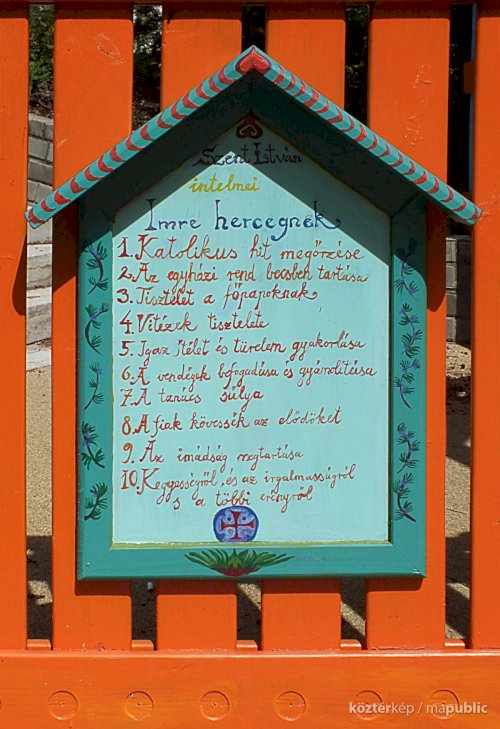 Szent István
intelmei
Imre hercegnek
1. Katolikus hit megőrzése
2. Az egyházi rend becsben tartása
3. Tisztelet a főpapoknak
4. Vitézek tisztelete
5. Igaz ítélet és türelem gyakorlása
6. A vendégek befogadása és gyámolítása
7. A tanács súlya
8. A fiak kövessék az elődöket
9. Az imádság megtartása
10. Kegyességről, és az irgalmasságról
s a többi erényről
köztérkép / mapublic